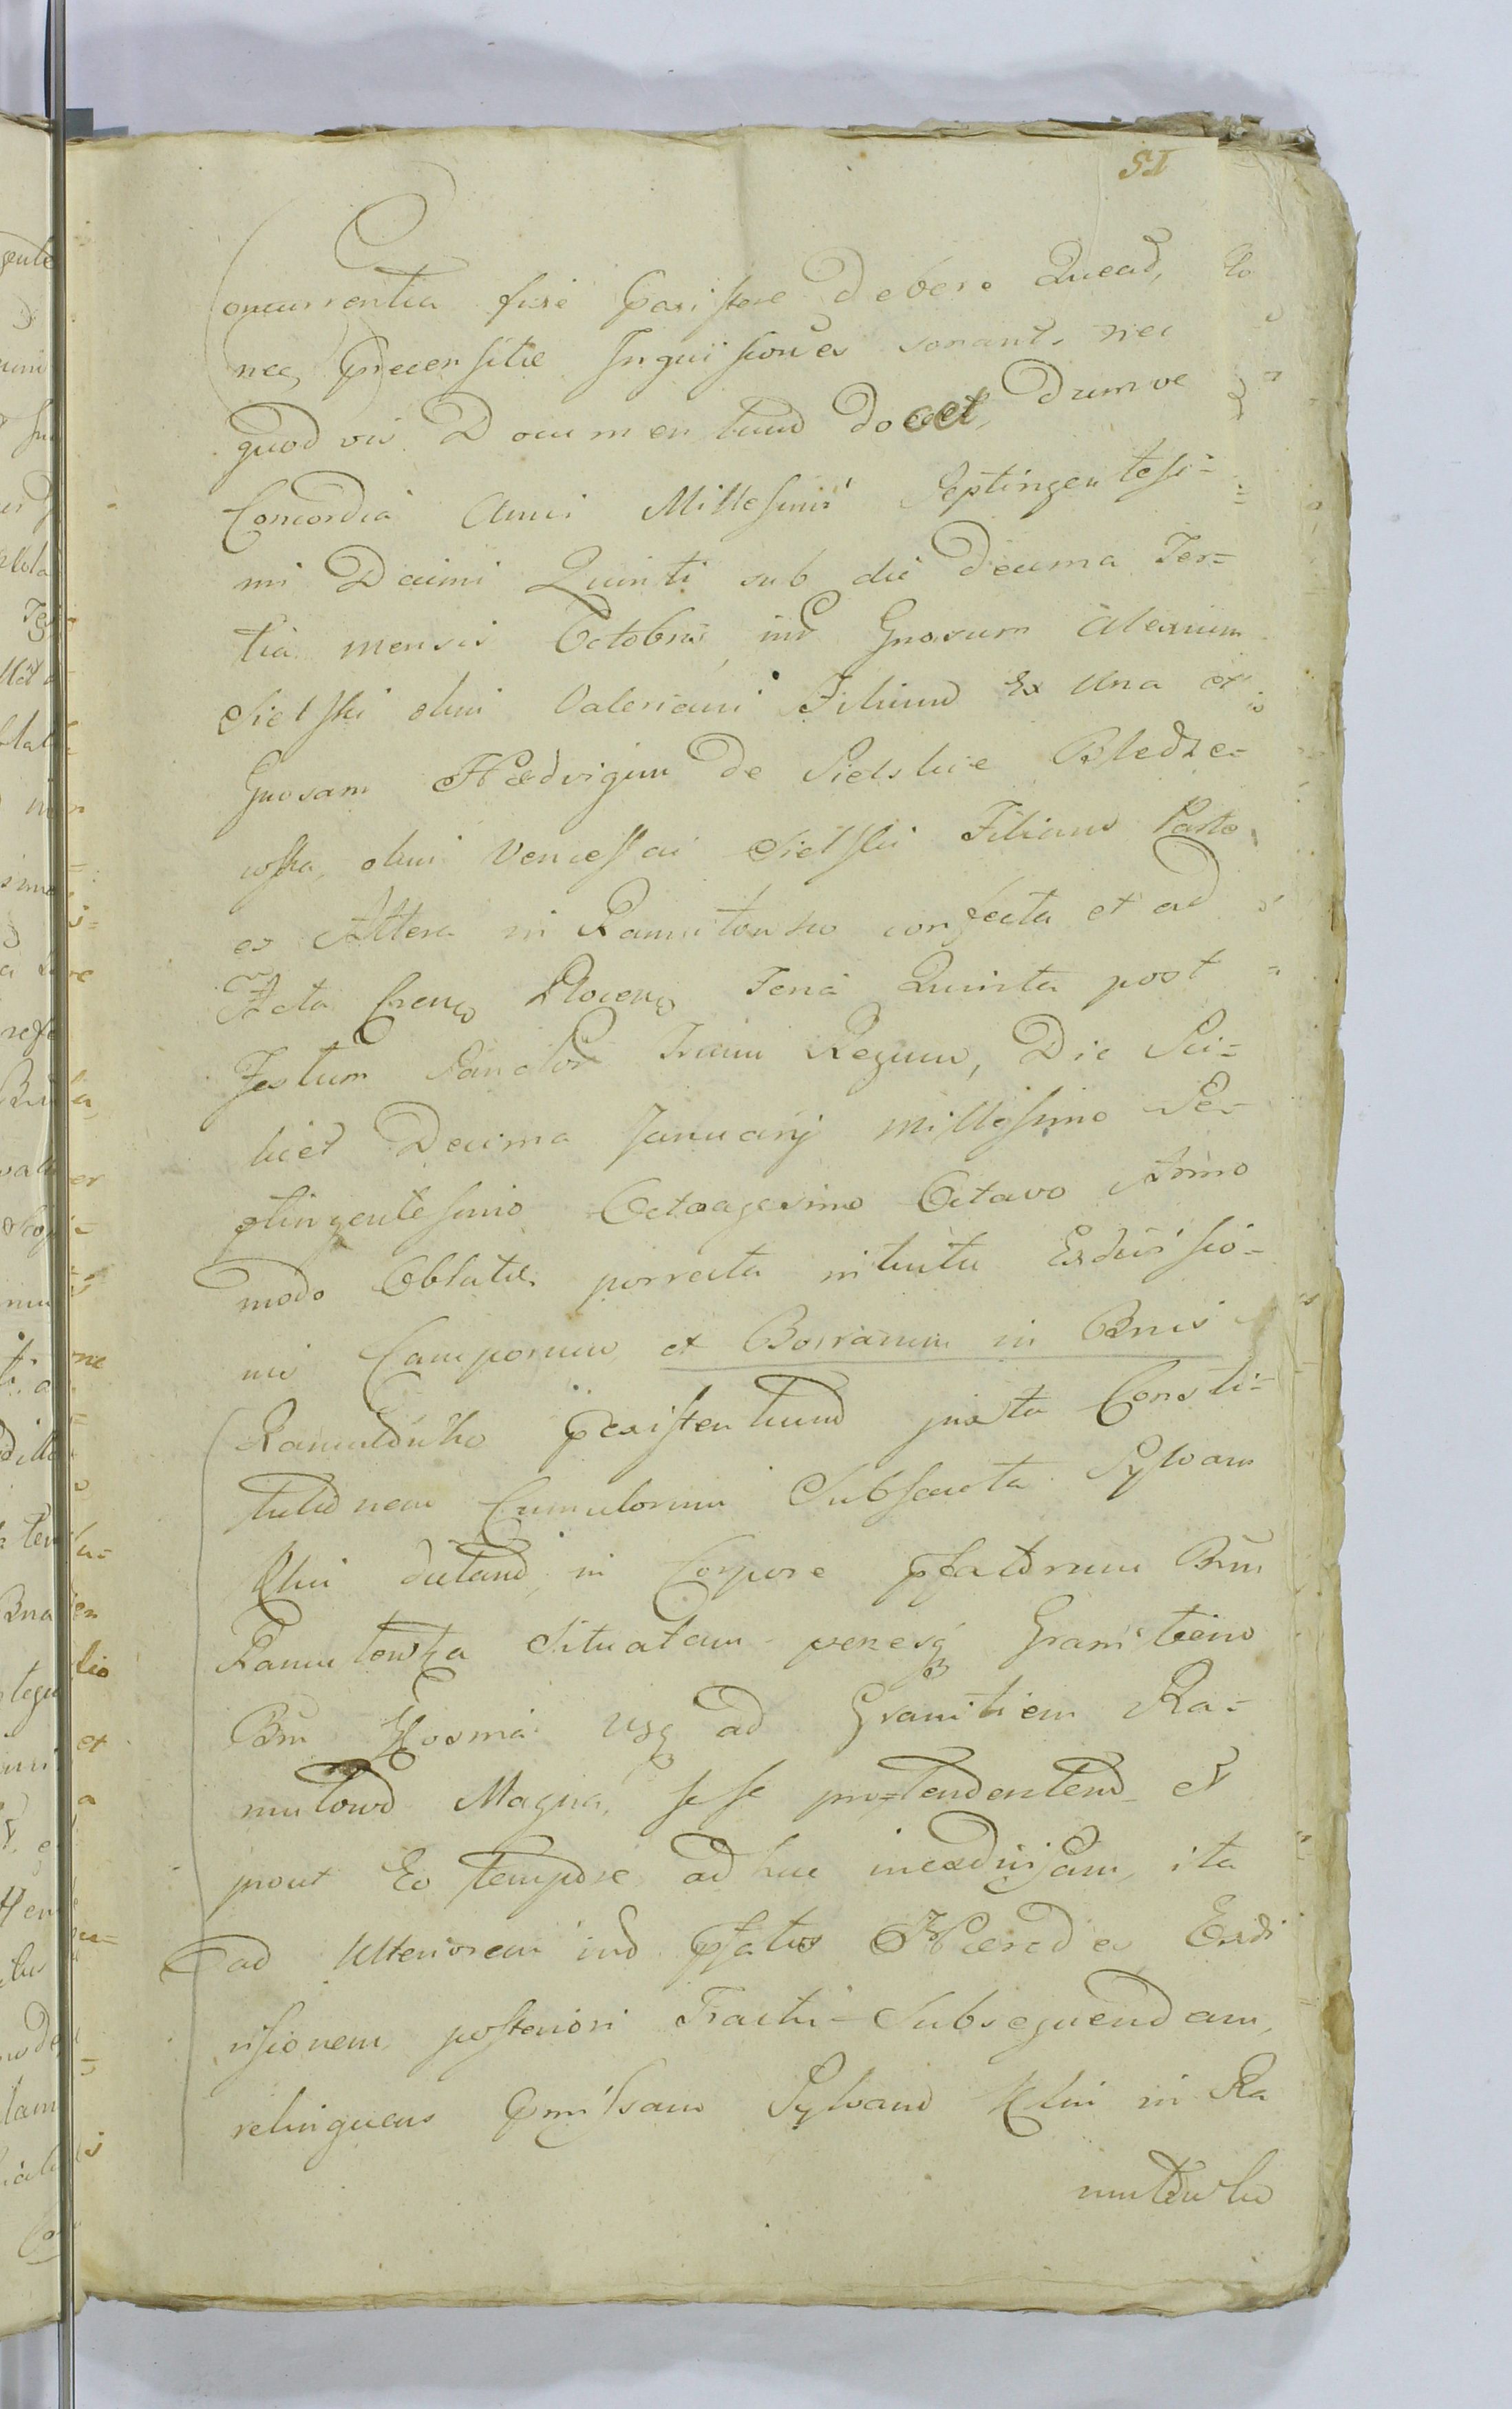 51
Concurrentia sua existere debere Quead,
nec praecensitae Inquisitiones sonant, nec
quodvis Documentum docet, Dum ve
Concordia Anni Millesimi Septingentesi=
mi Decimi Quinti sub die decima Ter=
tia mensis Octobris, int Gnosum Alexium
Sielski olim Valeriani Filium Ex Una et
Gnosam Hedvigim de Sielskie Bledze=
wska, olim Venceslai Sielski Filiam Parte
ex Altera in Ramutowko confecta et ad
Acta Crens Plocens Feria Quinta post
Festum Sanctor Trium Regum, Die Sci=
licet Decima Januarij Millesimo Se=
ptingentesimo Octoagesimo Octavo Anno
modo Oblatae porrecta intuitu Exdivisio=
nis Camporum et Borrarum in Bnis
Ramutowko existentium juxta Consti=
tutionem Cumulorum Subsecuta Sylvam
Klin dictam, in Corpore pfatorum Bnm
Ramutowka Situatam penesq Granitiem
Bnm Kosmin usq ad Granitiem Ra=
mutowo Magna, sese protendentem et
prout Eo tempore adhuc inexdivisam, ita
ad Ulteriorem int pfatos Haeredes Exdi
visionem, posteriori Tractu Subsequendam,
relinquens pmissam Sylvam Klin in Ra
mutowko